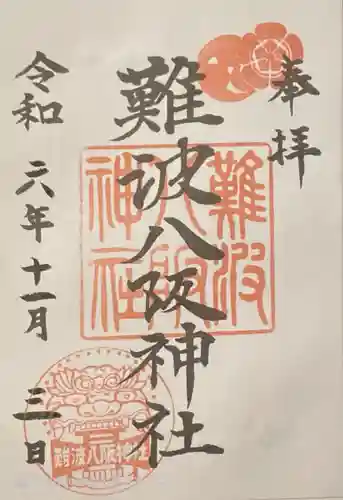 奉拝
難波八阪神社
令和六年十一月三日
難波
八阪
神社
難波八阪神社